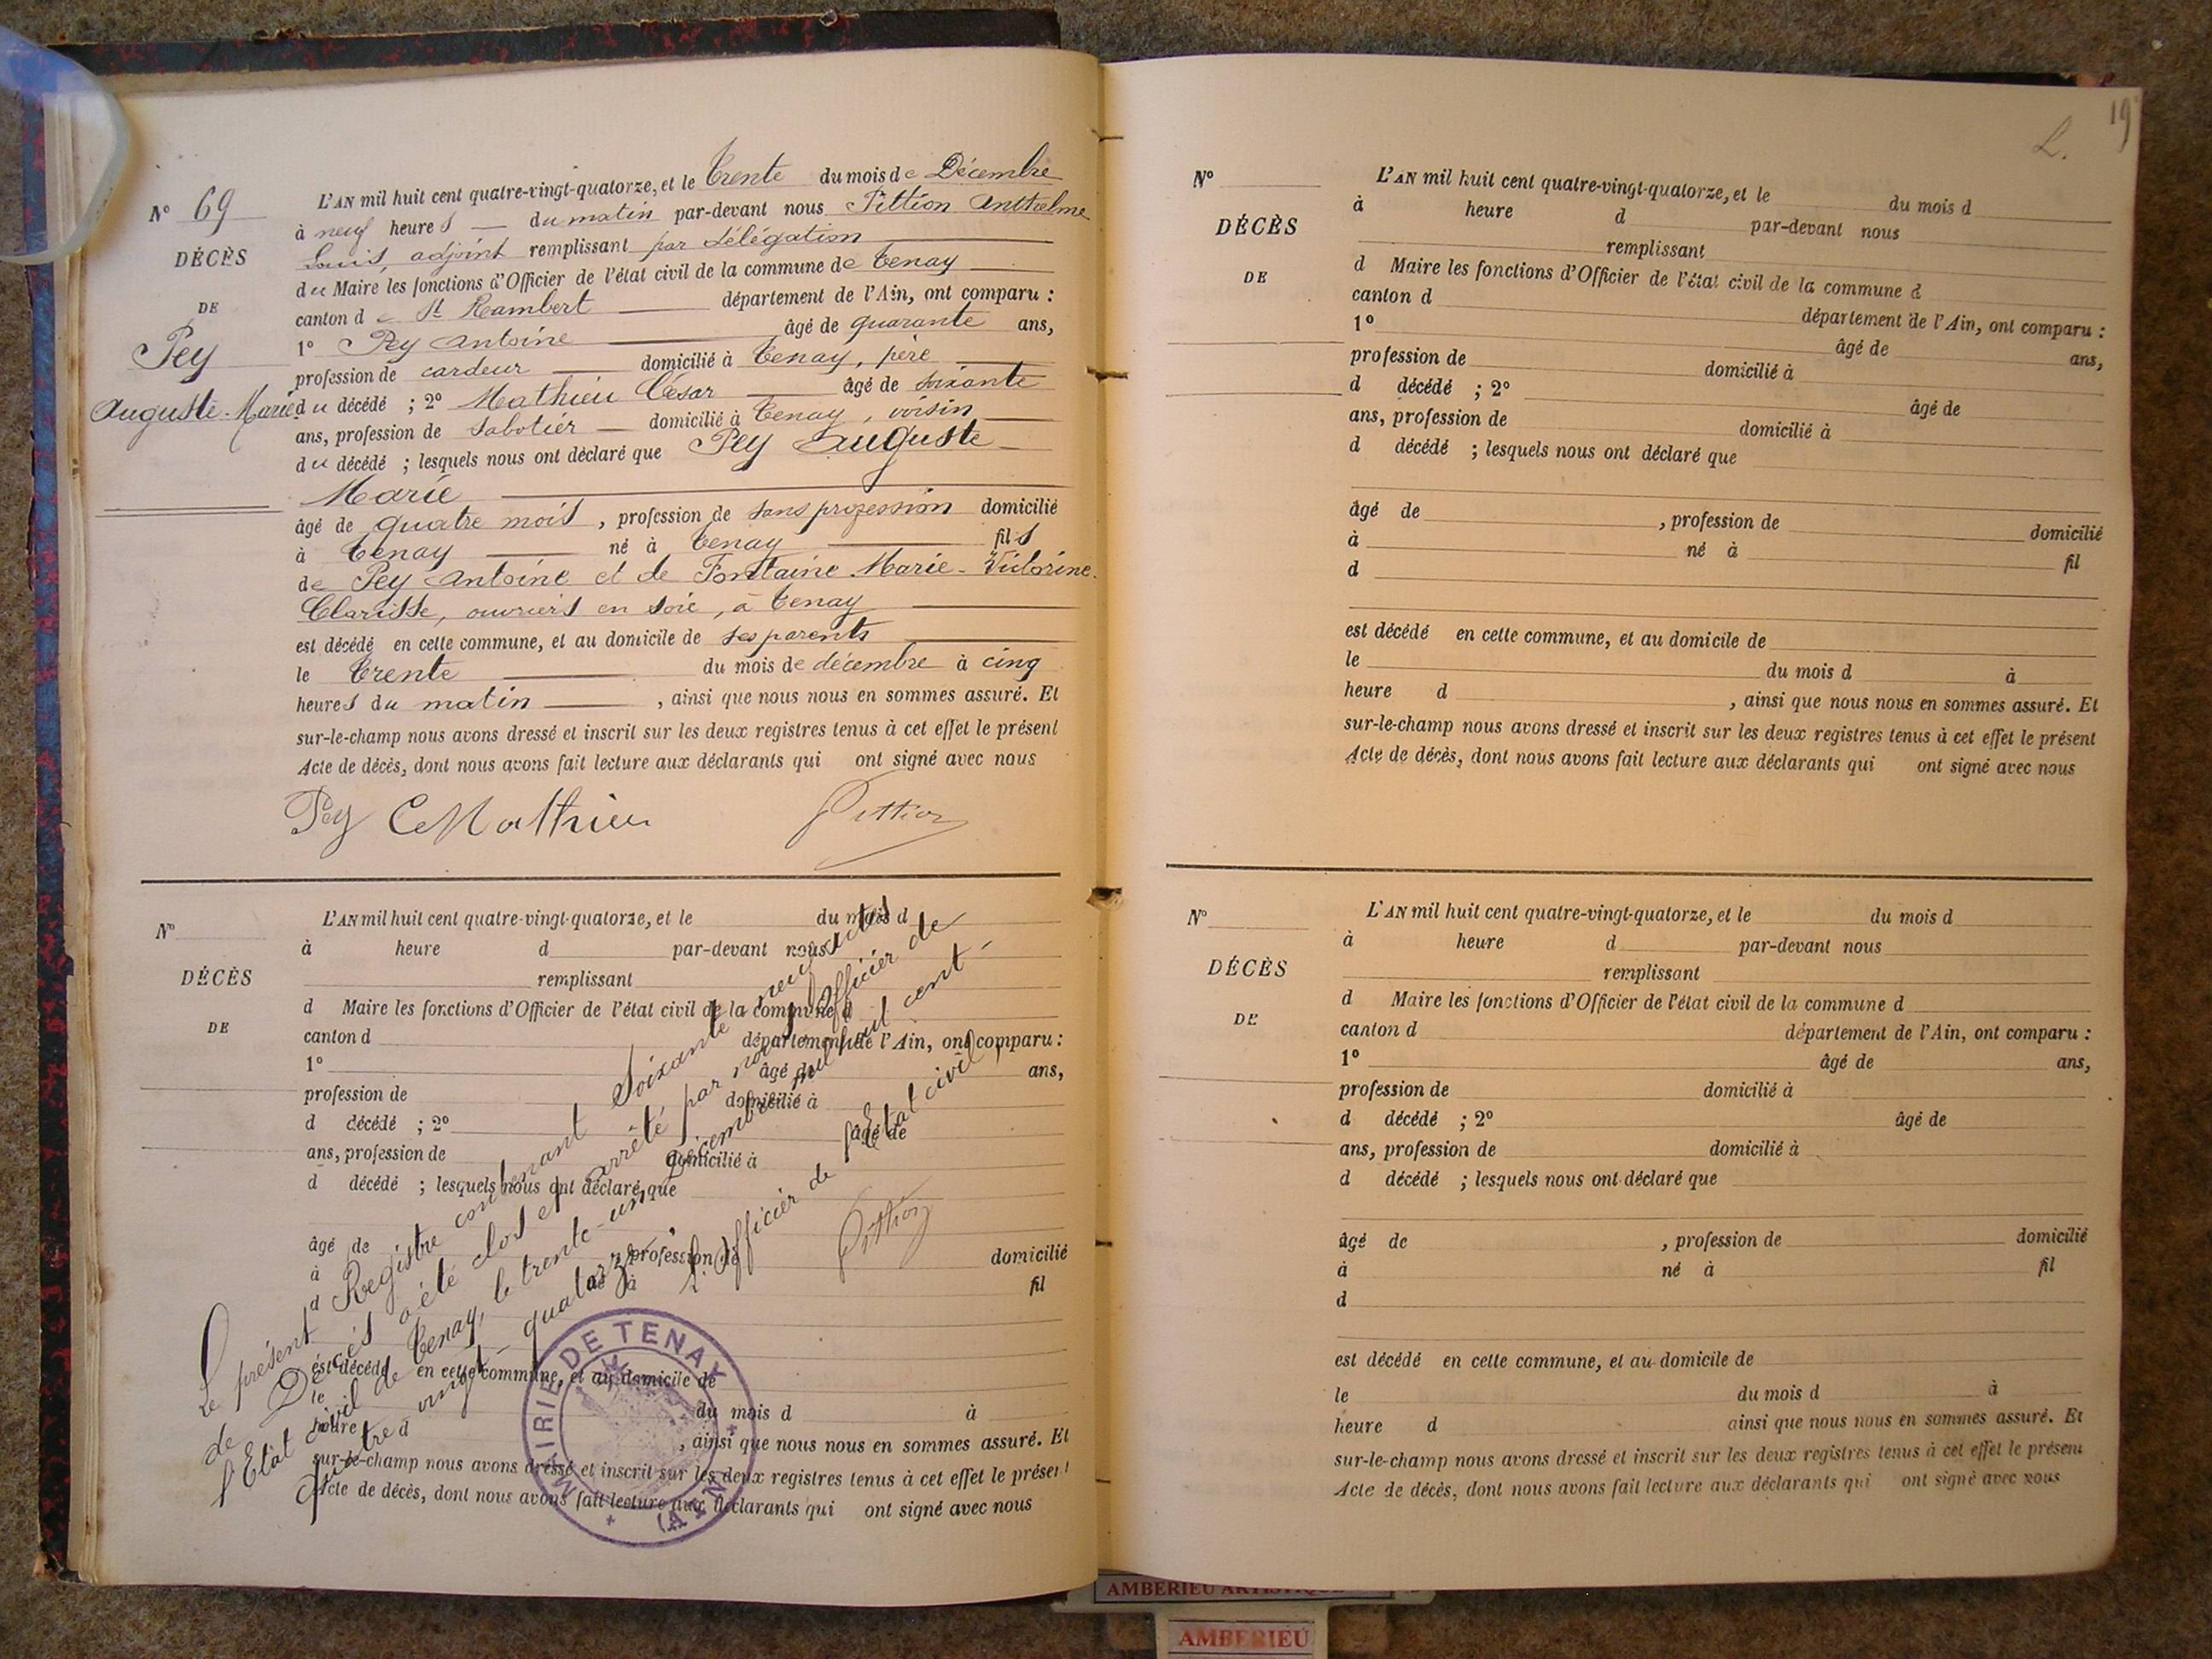 N° 69
DÉCÈS
DE
Pey
Auguste-Marie
L'AN mil huit cent quatre-vingt-quatorze, et le Trente du mois de Décembre
à neuf heures du matin par-devant nous Pittion Anthelme
Louis, adjoint remplissant par délégation
du Maire les fonctions d'Officier de l'état civil de la commune de Tenay
canton de St Rambert département de l'Ain, ont comparu :
1° Pey Antoine âgé de quarante ans,
profession de cardeur domicilié à Tenay, père
du décédé ; 2° Mathieu César âgé de soixante
ans, profession de sabotier domicilié à Tenay, voisin
du décédé ; lesquels nous ont déclaré que Pey Auguste
Marie
âgé de quatre mois, profession de sans profession domicilié
à Tenay né à Tenay fils
de Pey Antoine et de Fontaine Marie-Victorine
Clarisse, ouvriers en soie, à Tenay
est décédé en cette commune, et au domicile de ses parents
le Trente du mois de décembre à cinq
heures du matin, ainsi que nous nous en sommes assuré. Et
sur-le-champ nous avons dressé et inscrit sur les deux registres tenus à cet effet le présent
Acte de décès, dont nous avons fait lecture aux déclarants qui ont signé avec nous
Pey C Mathieu Pittion
N°
DÉCÈS
DE
L'AN mil huit cent quatre-vingt-quatorze, et le du mois d
à heure d par-devant nous
remplissant
d Maire les fonctions d'Officier de l'état civil de la commune d
canton d département de l'Ain, ont comparu :
1° âgé de ans,
profession de domicilié à
d décédé ; 2° âgé de
ans, profession de domicilié à
d décédé ; lesquels nous ont déclaré que
âgé de , profession de domicilié
à né à fil
d
est décédé en cette commune, et au domicile de
le du mois d à
heure d , ainsi que nous nous en sommes assuré. Et
sur-le-champ nous avons dressé et inscrit sur les deux registres tenus à cet effet le présent
Acte de décès, dont nous avons fait lecture aux déclarants qui ont signé avec nous
Le présent Registre contenant Soixante neuf actes
de Décès a été clos et arrêté par nous, officier de
l'Etat civil de Tenay, le trente-un Décembre mil huit cent
quatre vingt-quatorze.
L'officier de l'Etat civil,
Pittion
MAIRIE DE TENAY
(AIN)
19
L.
N°
DÉCÈS
DE
L'AN mil huit cent quatre-vingt-quatorze, et le du mois d
à heure d par-devant nous
remplissant
d Maire les fonctions d'Officier de l'état civil de la commune d
canton d département de l'Ain, ont comparu :
1° âgé de ans,
profession de domicilié à
d décédé ; 2° âgé de
ans, profession de domicilié à
d décédé ; lesquels nous ont déclaré que
âgé de , profession de domicilié
à né à fil
d
est décédé en cette commune, et au domicile de
le du mois d à
heure d , ainsi que nous nous en sommes assuré. Et
sur-le-champ nous avons dressé et inscrit sur les deux registres tenus à cet effet le présent
Acte de décès, dont nous avons fait lecture aux déclarants qui ont signé avec nous
N°
DÉCÈS
DE
L'AN mil huit cent quatre-vingt-quatorze, et le du mois d
à heure d par-devant nous
remplissant
d Maire les fonctions d'Officier de l'état civil de la commune d
canton d département de l'Ain, ont comparu :
1° âgé de ans,
profession de domicilié à
d décédé ; 2° âgé de
ans, profession de domicilié à
d décédé ; lesquels nous ont déclaré que
âgé de , profession de domicilié
à né à fil
d
est décédé en cette commune, et au domicile de
le du mois d à
heure d ainsi que nous nous en sommes assuré. Et
sur-le-champ nous avons dressé et inscrit sur les deux registres tenus à cet effet le présent
Acte de décès, dont nous avons fait lecture aux déclarants qui ont signé avec nous
AMBERIEU ARTISTIQUE
AMBERIEU